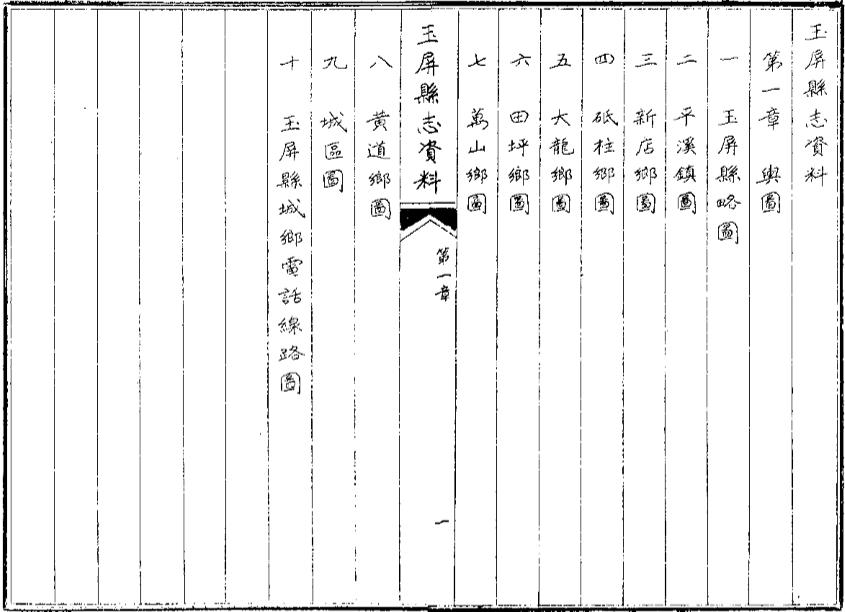 玉屏縣志資料
第一章 輿圖
一 玉屏縣略圖
二 平溪鎮圖
三 新店鄉圖
四 砥柱鄉圖
五 大龍鄉圖
六 田坪鄉圖
七 萬山鄉圖
玉屏縣志資料 第一章 一
八 黃道鄉圖
九 城區圖
十 玉屏縣城鄉電話線路圖